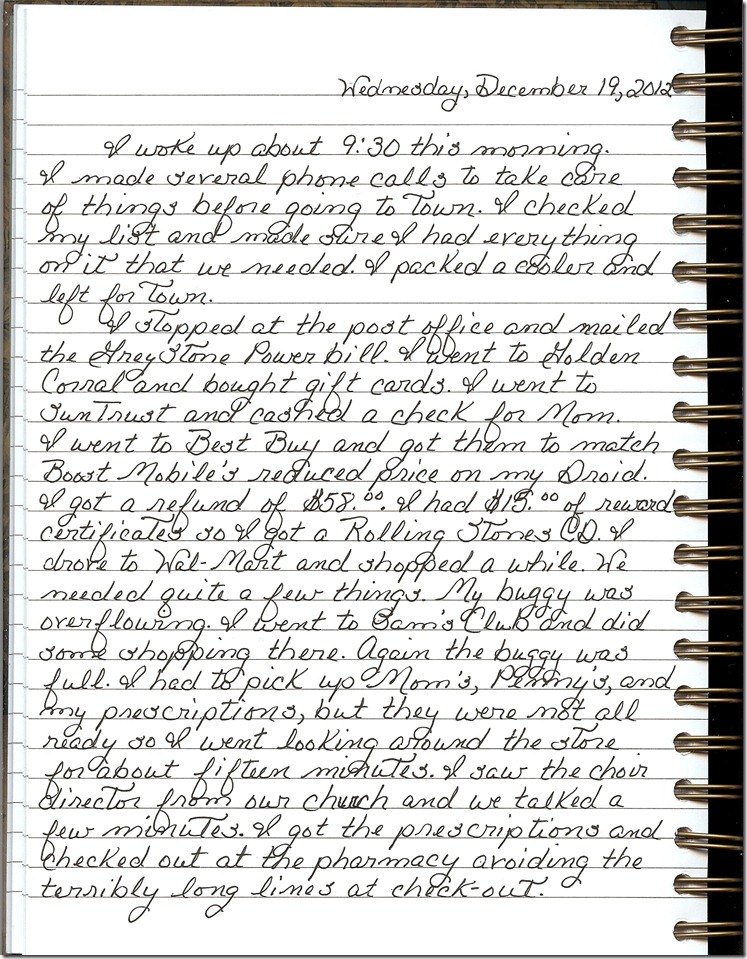 Wednesday, December 19, 2012
I woke up about 9:30 this morning.
I made several phone calls to take care
of things before going to Town. I checked
my list and made sure I had everything
on it that we needed. I packed a cooler and
left for Town.
I stopped at the post office and mailed
the GreyStone Power bill. I went to Golden
Corral and bought gift cards. I went to
SunTrust and cashed a check for Mom.
I went to Best Buy and got them to match
Boost Mobile's reduced price on my Droid.
I got a refund of $58.00. I had $15.00 of reward
certificates so I got a Rolling Stones CD. I
drove to Wal-Mart and shopped a while. We
needed quite a few things. My buggy was
overflowing. I went to Sam's Club and did
some shopping there. Again the buggy was
full. I had to pick up Mom's, Penny's, and
my prescriptions, but they were not all
ready so I went looking around the store
for about fifteen minutes. I saw the choir
director from our church and we talked a
few minutes. I got the prescriptions and
checked out at the pharmacy avoiding the
terribly long lines at check-out.